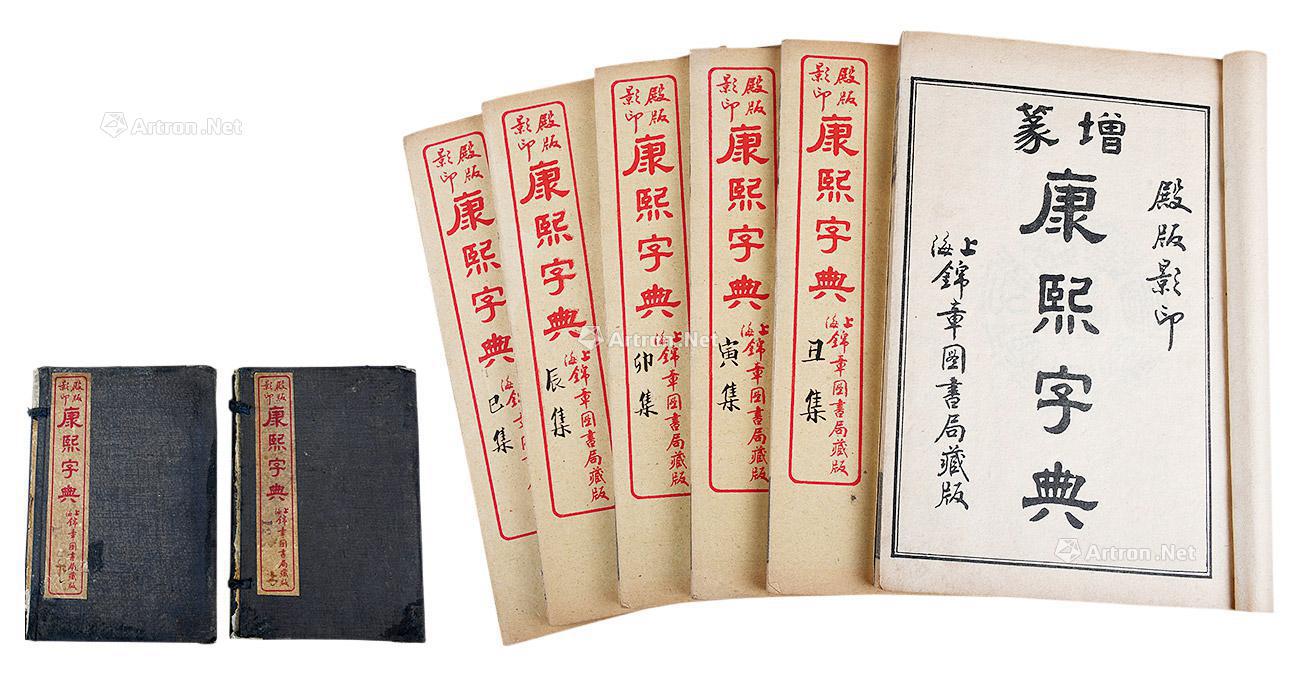 增篆
康熙字典
殿版影印
上海錦章圖書局藏版
殿版影印
康熙字典
上海錦章圖書局藏版
丑集
殿版影印
康熙字典
上海錦章圖書局藏版
寅集
殿版影印
康熙字典
上海錦章圖書局藏版
卯集
殿版影印
康熙字典
上海錦章圖書局藏版
辰集
殿版影印
康熙字典
海錦章
巳集
殿版影印
康熙字典
上海錦章圖書局藏版
殿版影印
康熙字典
上海錦章圖書局藏版
Artron.Net
Artron.Net
Artron.Net